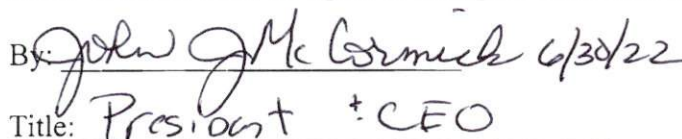 By: John J McCormick 6/30/22
Title: President + CEO